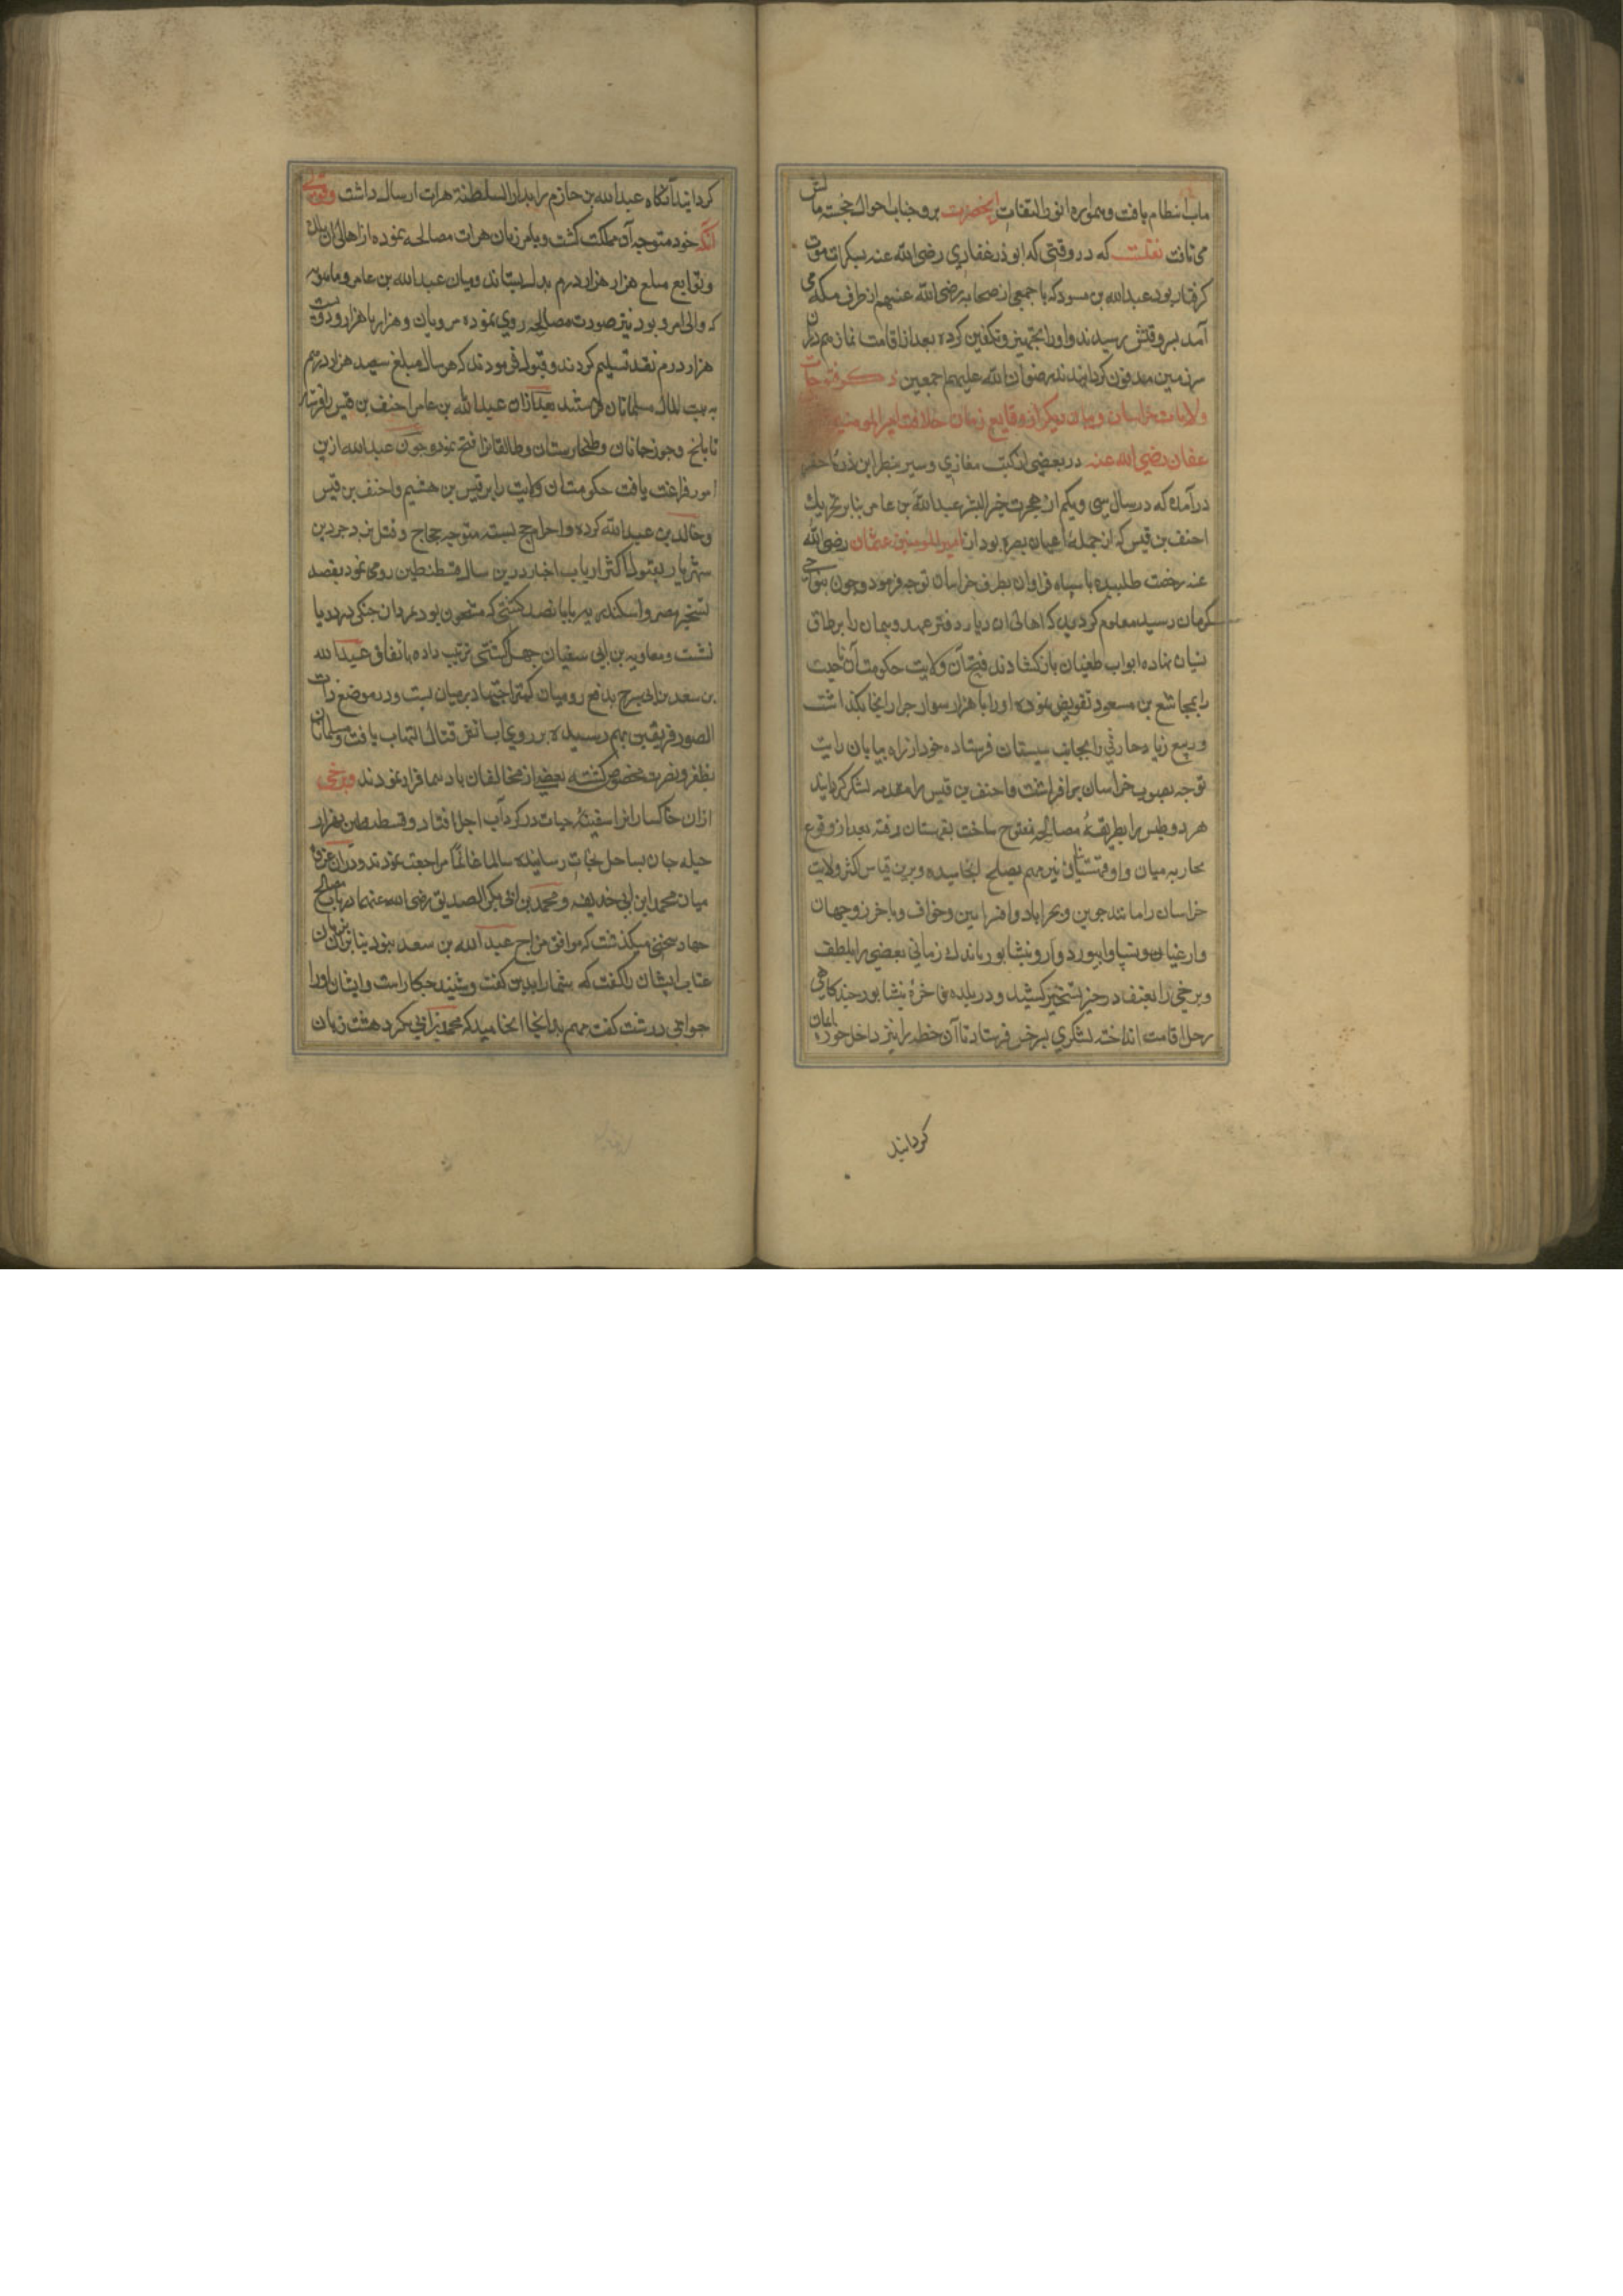 ماب انتظام یافت وهمواره انوار التفات آنحضرت بر وجنات احوال خجسته مآلش
می تافت نقلست که در وقتی که ابوذر غفاری رضی الله عنه بسکرات موت
گرفتار بود عبدالله بن مسعود که با جمعی از صحابه رضی الله عنهم از طرف مکه می
آمد بسر وقتش رسیدند و او را تجهیز و تکفین کرده بعد از اقامت نماز هم در آن
سرزمین مدفون گردانیدند رضوان الله علیهم اجمعین ذکر فتوحات
ولایات خراسان و بیان دیگر از وقایع زمان خلافت امیر المومنین
عفان رضی الله عنه در بعضی از کتب مغازی و سیر بنظر این ذره احقر
درآمده که در سال سی و یکم از هجرت خیر البشر عبدالله بن عامر بنا بر تحریک
احنف بن قیس که از جملهٔ اعیان بصره بود از امیر المومنین عثمان رضی الله
عنه رخصت طلبیده با سپاه فراوان بطرف خراسان توجه فرمود و چون بنواحی
کرمان رسید معلوم کردید که اهالی آن دیار دفتر عهد و پیمان را بر طاق
نسیان نهاده ابواب طغیان بازکشادند فتح آن ولایت حکومت آن ناحیت
را بمجاشع بن مسعود تفویض نموده او را با هزار سوار جرار آنجا بگذاشت
و ربیع زیاد حارثی را بجانب سیستان فرستاده خود از راه بیابان رایت
توجه بصوب خراسان برافراشت و احنف بن قیس را مقدمه لشکر گردانید
هر دو طبس را بطریقهٔ مصالحه مفتوح ساخت بقهستان رفته بعد از وقوع
محاربه میان او و قهستانیان نیز مهم بصلح انجامیده و برین قیاس اکثر ولایت
خراسان را مانند جوین و بحراباد و اسفراین و خواف و باخرز و جهان
و ارغیان و نسا و ابیورد و نیشابور باندک زمانی بعضی را بلطف
و برخی را بعنف در حیز تسخیر کشید و در بلده فاخرهٔ نیشابور چند گاهی
رحل اقامت انداخته لشکری بسرخس فرستاد تا آن خطه را نیز داخل حوزه
گردانید
گردانید آنگاه عبدالله بن حازم را بدارالسلطنة هرات ارسال داشت و بقولی
آنکه خود متوجه آن مملکت گشت و با مرزبان هرات مصالحه نموده از اهالی آن بلده
و توابع مبلغ هزار هزار درم بدل بستاند و میان عبدالله بن عامر و ماهویه
که والی مرو بود نیز صورت مصالحه روی نموده مرویان و هزار با هزار و دویست
هزار درم نقد تسلیم کردند و قبول فرمودند که هر سال مبلغ سیصد هزار درهم
به بیت المال مسلمانان فرستند بعد ازان عبدالله بن عامر احنف بن قیس را فرستاد
تا بلخ و جوزجانان و طخارستان و طالقانرا فتح نمود و چون عبدالله ازین
امور فراغت یافت حکومت آن ولایت را بر قیس بن هشیم و احنف بن قیس
و خالد بن عبدالله کرده و احرام حج بسته متوجه حجاج و قتل یزدجرد بن
شهریار بقول اکثر ارباب اخبار درین سال قسطنطین رومی نمود بقصد
تسخیر مصر و اسکندریه با پانصد کشتی که مشحون بود بمردان جنگی در دریا
نشست و معاویه بن ابی سفیان چهل کشتی ترتیب داده باتفاق عبدالله
بن سعد بن ابی سرح بدفع رومیان کمر اجتهاد بر میان بست و در موضع ذات
الصور فریقین بهم رسیده بر روی آب آتش قتال التهاب یافت و مسلمانان
بظفر و نصرت مخصوص گشته بعضی از مخالفان بادپیما فرار نمودند و برخی
ازان خاکسار انرا سفینهٔ حیات در گرداب اجل افتاد و قسطنطین بهزار
حیله جان بساحل نجات رسانیده سالما غانما مراجعت نمودند و در آن غزوه
میان محمد ابن ابی حذیفه و محمد بن ابی بکر الصدیق رضی الله عنهما در باب مصالح
جهاد سخنی میگذشت که موافق مزاج عبدالله بن سعد نبود بنا بران زبان
عتاب ایشان را گفت که شما را بدین گفت و شنید چکار است و ایشان او را
جوابی درشت گفت مهم بدانجا انجامید که محمد بن ابی بکر دهشت زبان